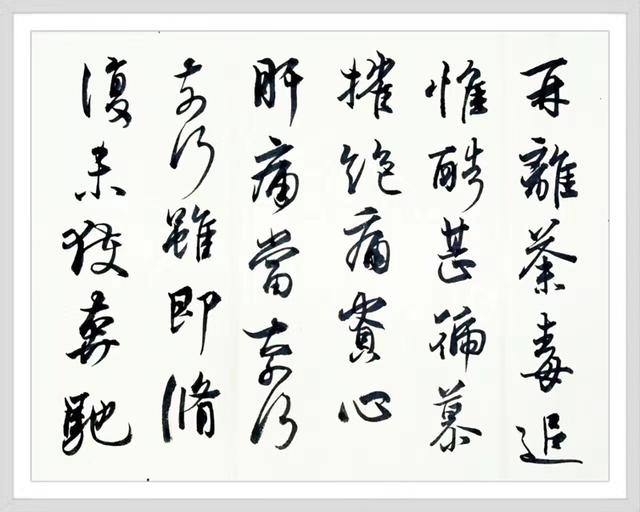 再離荼毒追
惟酷甚號慕
摧絕痛貫心
肝痛當奈何
奈何雖即脩
復未獲奔馳